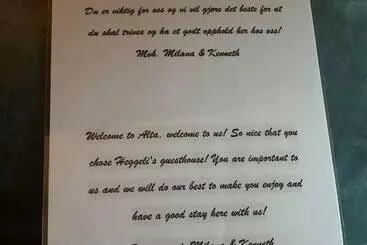 Du er viktig for oss og vi vil gjøre det beste for at
du skal trives og ha et godt opphold her hos oss!
Mvh. Milana & Kenneth
Welcome to Alta, welcome to us! So nice that you
chose Heggeli's guesthouse! You are important to
us and we will do our best to make you enjoy and
have a good stay here with us!
Milana & Kenneth